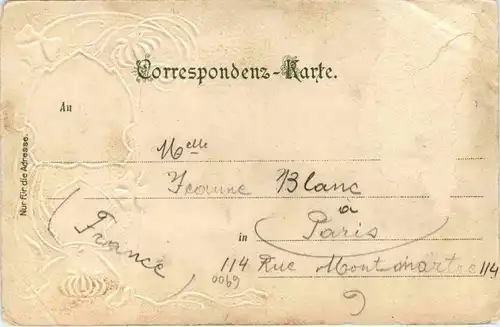 Correspondenz-Karte.
An
Nur für die Adresse.
Melle
Yvonne Blanc
à
in Paris
(France)
114 Rue Montmartre 114
0069